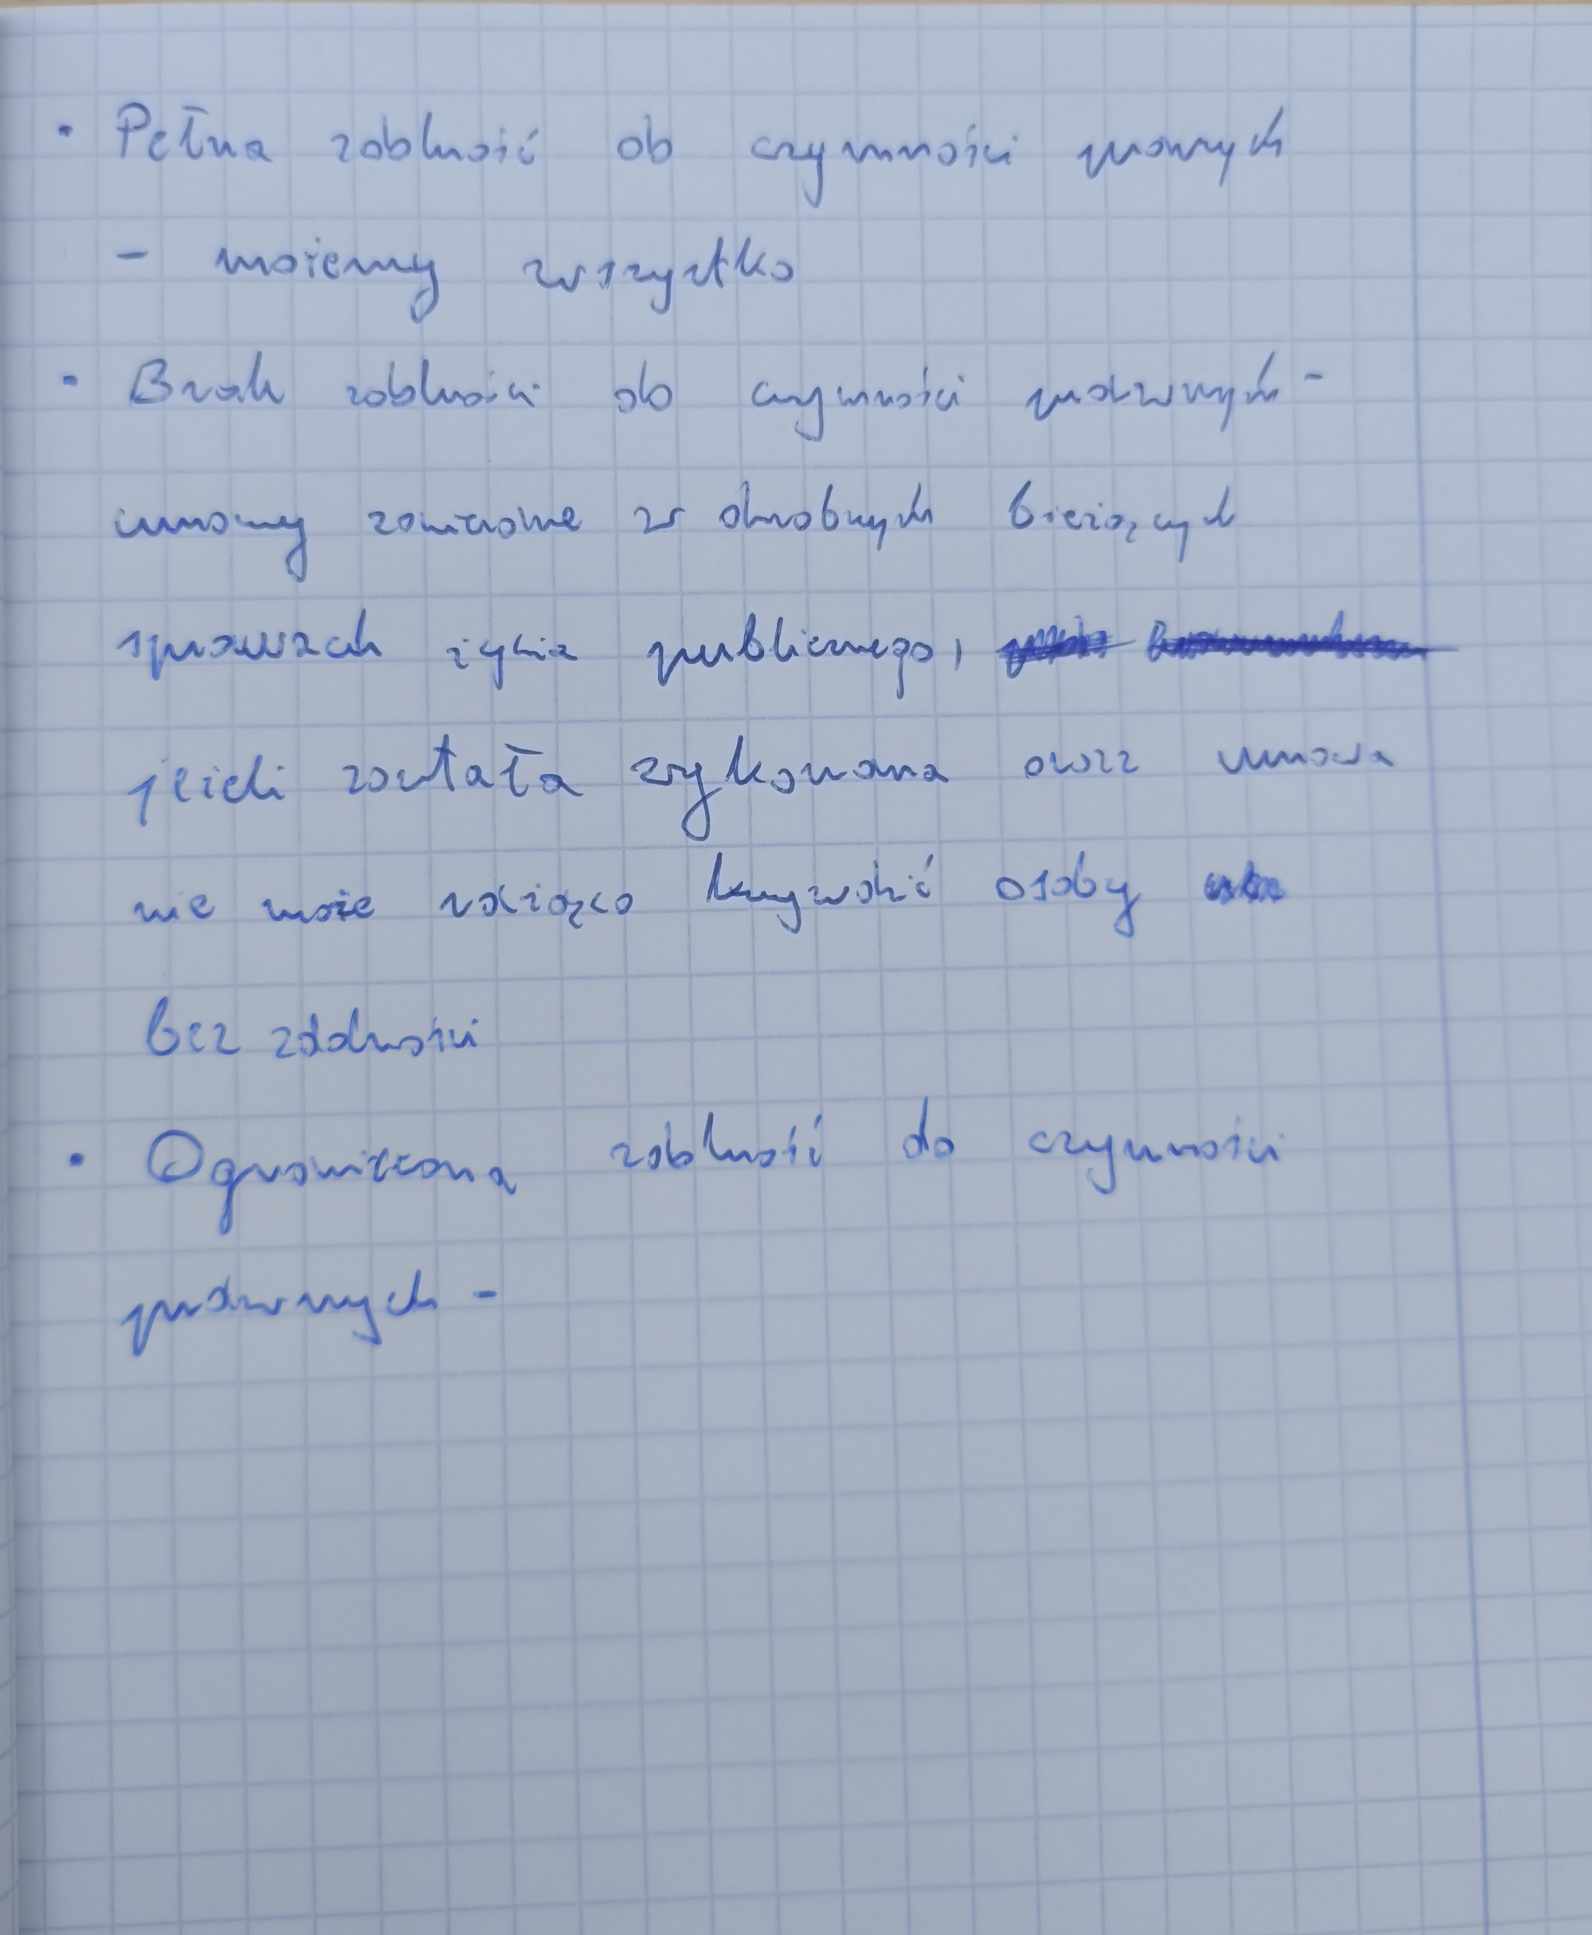 • Pełna zdolność do czynności prawnych
- możemy wszystko
• Brak zdolności do czynności prawnych -
umowy zawierane w drobnych bieżących
sprawach życia publicznego,
jeżeli została wykonana oraz umowa
nie może rażąco krzywdzić osoby
bez zdolności
• Ograniczona zdolność do czynności
prawnych -